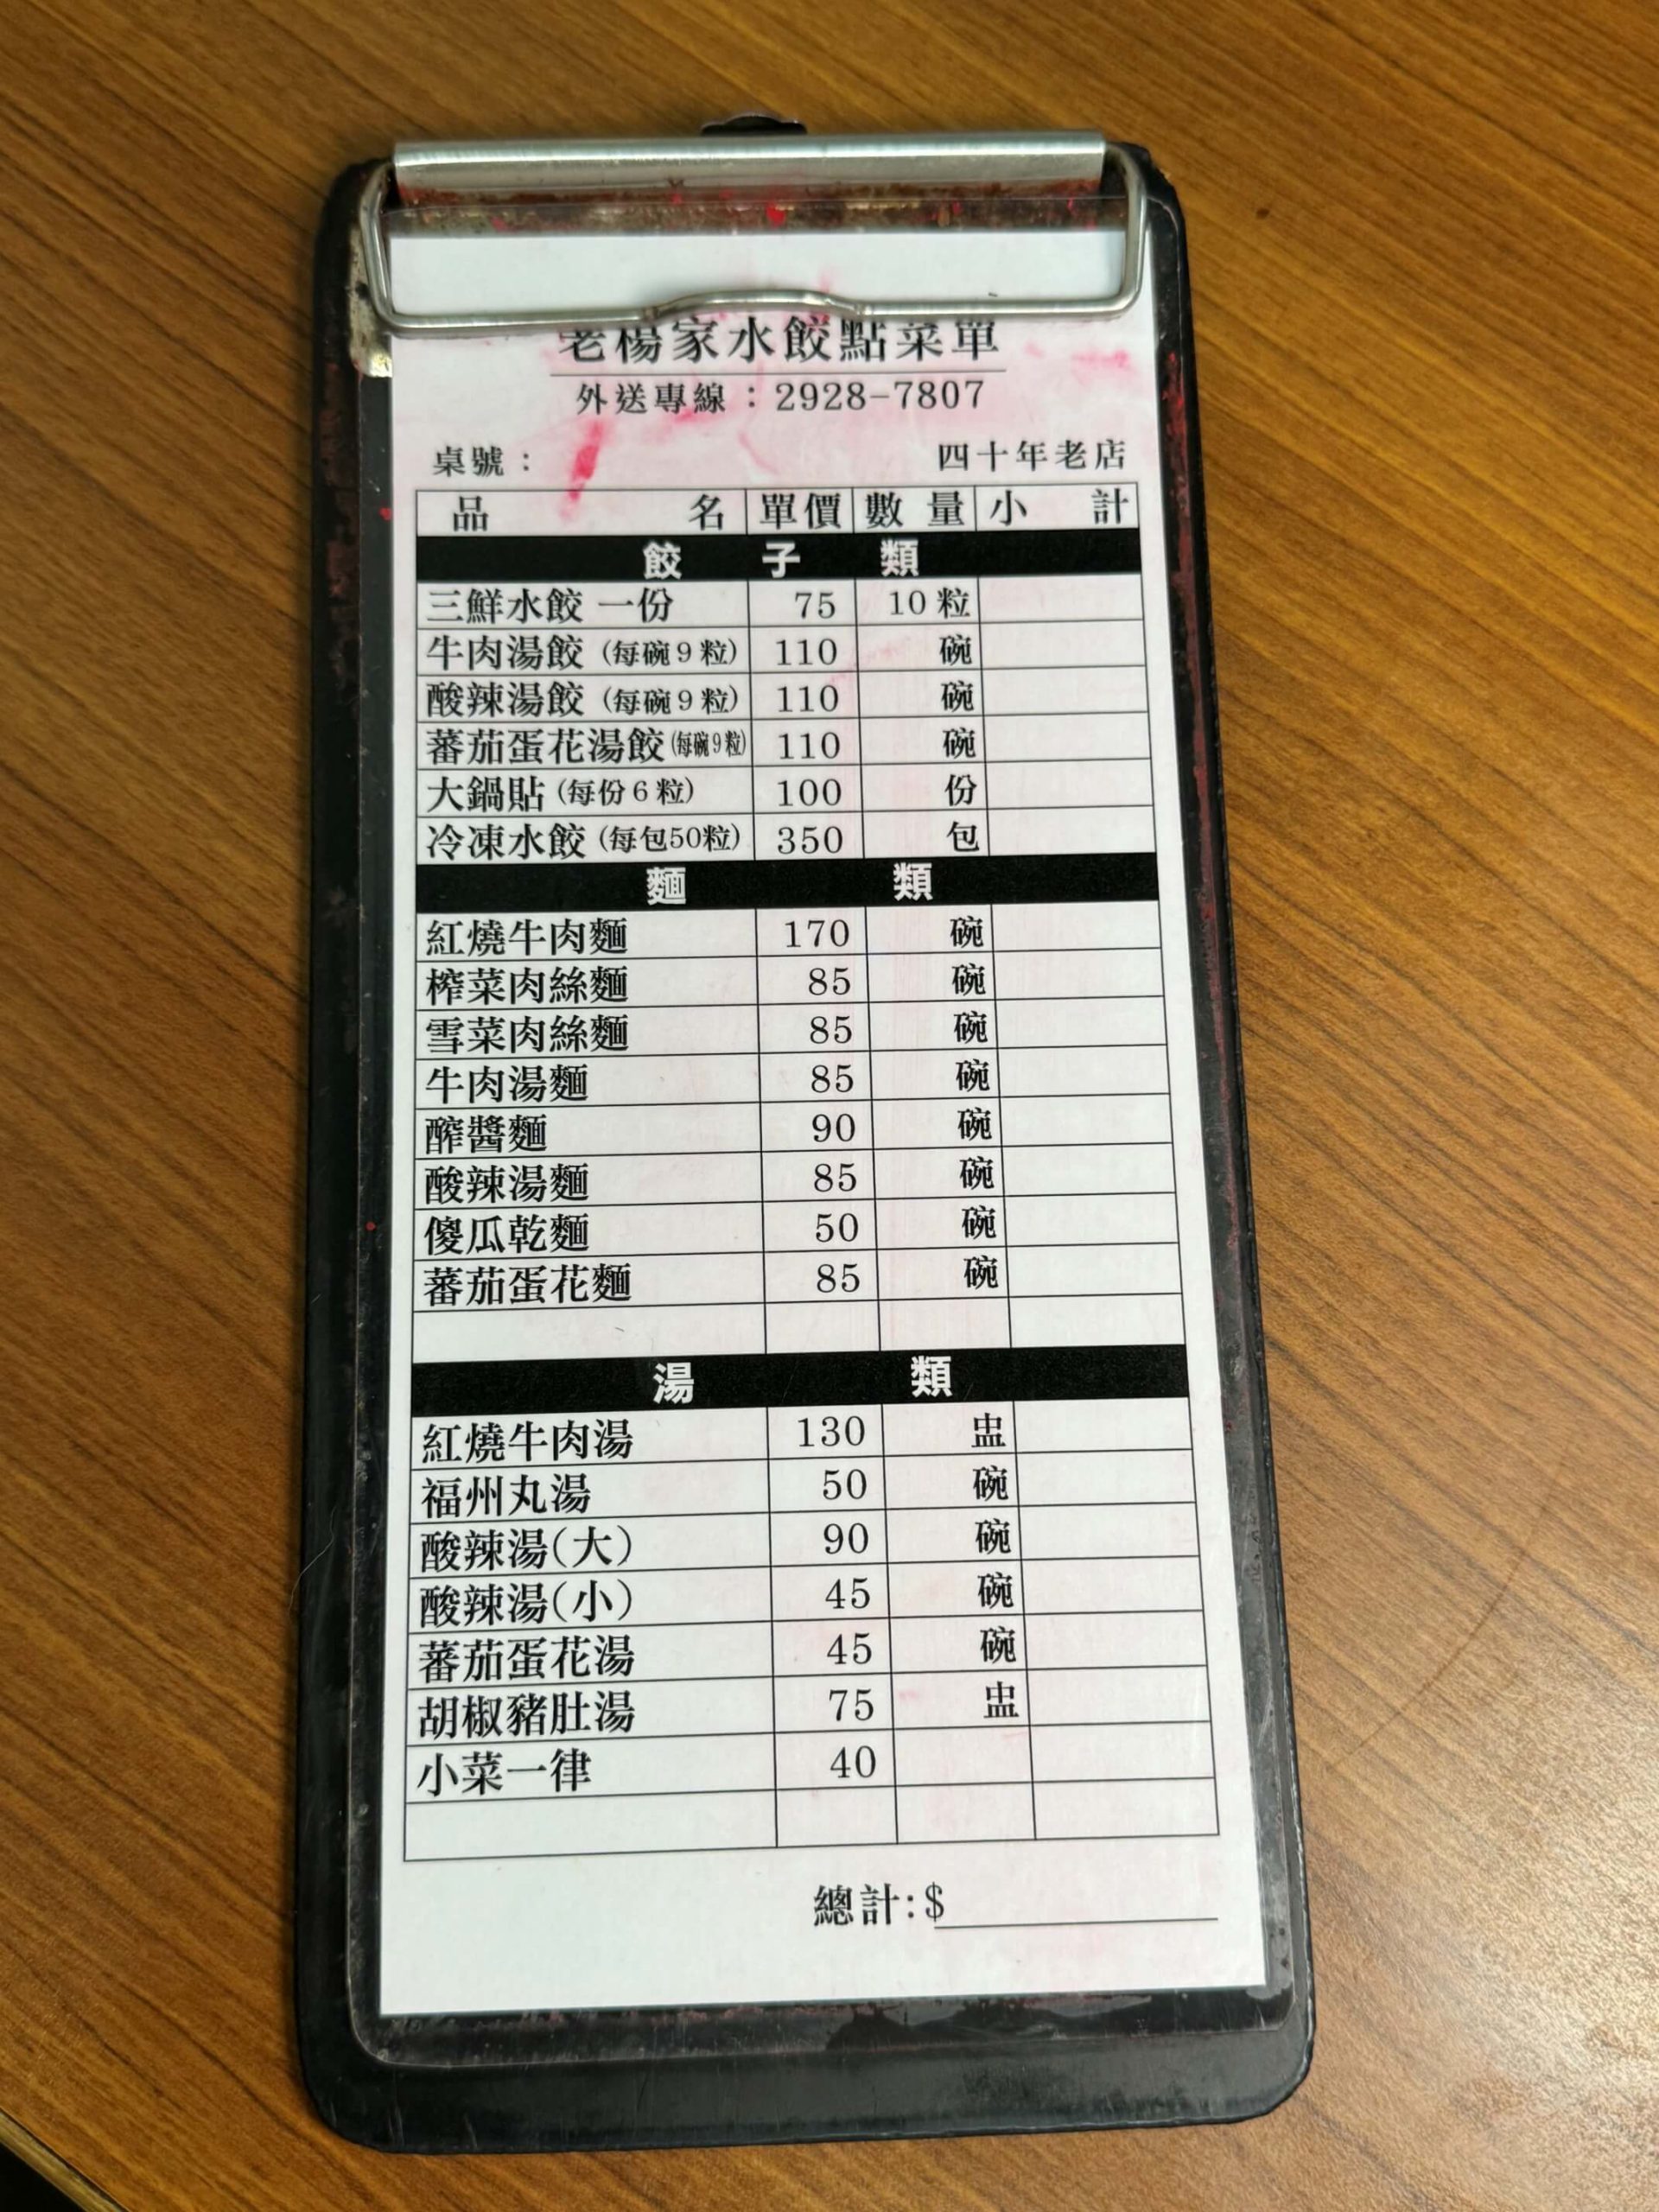 老楊家水餃點菜單
外送專線：2928-7807
桌號： 四十年老店
品名 單價 數量 小計
餃子類
三鮮水餃 一份 75 10粒
牛肉湯餃 (每碗9粒) 110 碗
酸辣湯餃 (每碗9粒) 110 碗
蕃茄蛋花湯餃(每碗9粒) 110 碗
大鍋貼 (每份6粒) 100 份
冷凍水餃 (每包50粒) 350 包
麵類
紅燒牛肉麵 170 碗
榨菜肉絲麵 85 碗
雪菜肉絲麵 85 碗
牛肉湯麵 85 碗
醡醬麵 90 碗
酸辣湯麵 85 碗
傻瓜乾麵 50 碗
蕃茄蛋花麵 85 碗
湯類
紅燒牛肉湯 130 盅
福州丸湯 50 碗
酸辣湯(大) 90 碗
酸辣湯(小) 45 碗
蕃茄蛋花湯 45 碗
胡椒豬肚湯 75 盅
小菜一律 40
總計:$